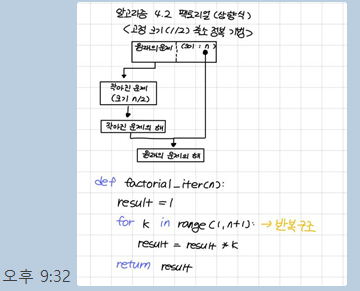 알고리즘 4.2 팩토리얼 (상향식)
<고정 크기(1/2) 축소 정복 기법>
원래의 문제 (크기 : n)
작아진 문제
(크기 n/2)
작아진 문제의 해
원래의 문제의 해
def factorial_iter(n):
result = 1
for k in range(1, n+1): → 반복구조
result = result * k
return result
오후 9:32